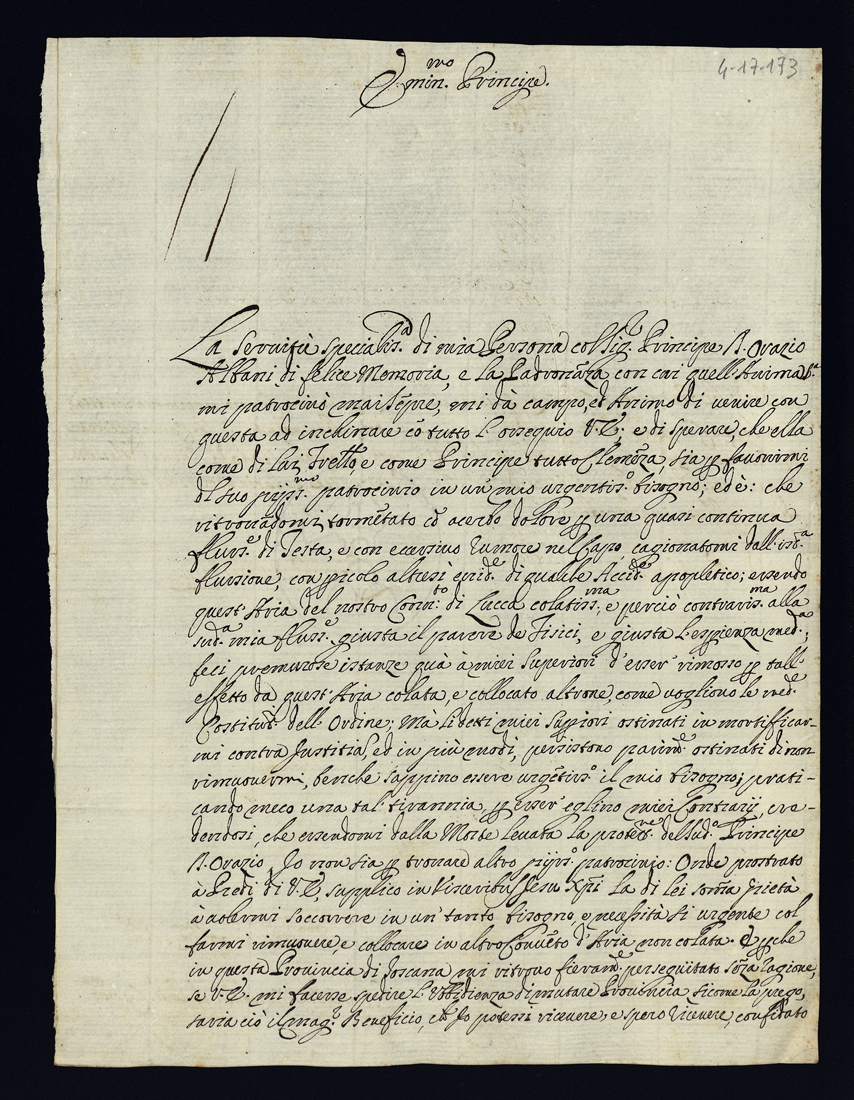 4-17-173
Emin.mo Principe.
La Servitù specialis.a di mia Persona col Sig.r Principe D. Orazio
Albani di felice Memoria, e la Padronãza con cui quell'Anima B.a
mi patrocinò mai sẽpre, mi dà campo, ed Animo di venire con
questa ad inchinare cõ tutto l'ossequio V.E. e di sperare, che ella
come di lui Frello, e come Principe tutto Clemẽza, sia p favorirmi
del suo pijss.mo patrocinio in un mio urgentis.o bisogno; ed è: che
ritrovãdomi tormẽtato cõ acerbo dolore p una quasi continua
fluss.e di Testa, e con eccessivo rumore nel Capo, cagionatomi dall'ist.a
flussione, con picolo altresì evid.e di qualche Accid.e apopletico; essendo
quest'Aria del nostro Conv.to di Lucca colatiss.ma, e perciò contraris.ma alla
sud.a mia fluss.e giusta il parere de Fisici, e giusta l'espienza med.a;
feci premurose istanze quà à miei Superiori d'esser rimosso p tall'
effetto da quest'Aria colata, e collocato altrove, come vogliono le med.e
Costituz.i dell'Ordine; Ma li detti miei Supiori ostinati in mortificar-
mi contra Justitiã, ed in più modi, persistono parim.e ostinati di non
rimuovermi, benche sappino essere urgẽtiss.o il mio bisogno; prati-
cando meco una tal tirannia p esser eglino miei Contrarij, cre-
dendosi, che essendomi dalla Morte levata la protez.ne del sud.o Principe
D. Orazio, Io non sia p trovare altro pijss.o patrocinio: Onde prostrato
à Piedi di V.E. supplico in Visceribus Jesu Xpi la di lei somã pietà
à volermi soccorrere in un tanto bisogno, e necessità sì urgente col
farmi rimuovere, e collocare in altro Convẽto d'Aria non colata. E pche
in questa Provincia di Toscana mi ritrovo fieram.e perseguitato sẽza ragione,
se V.E. mi facesse spedire l'Ubbidienza di mutare Provincia sicome la prego,
saria ciò il mag.r Beneficio, che Io potessi ricevere, e spero ricevere, confidato